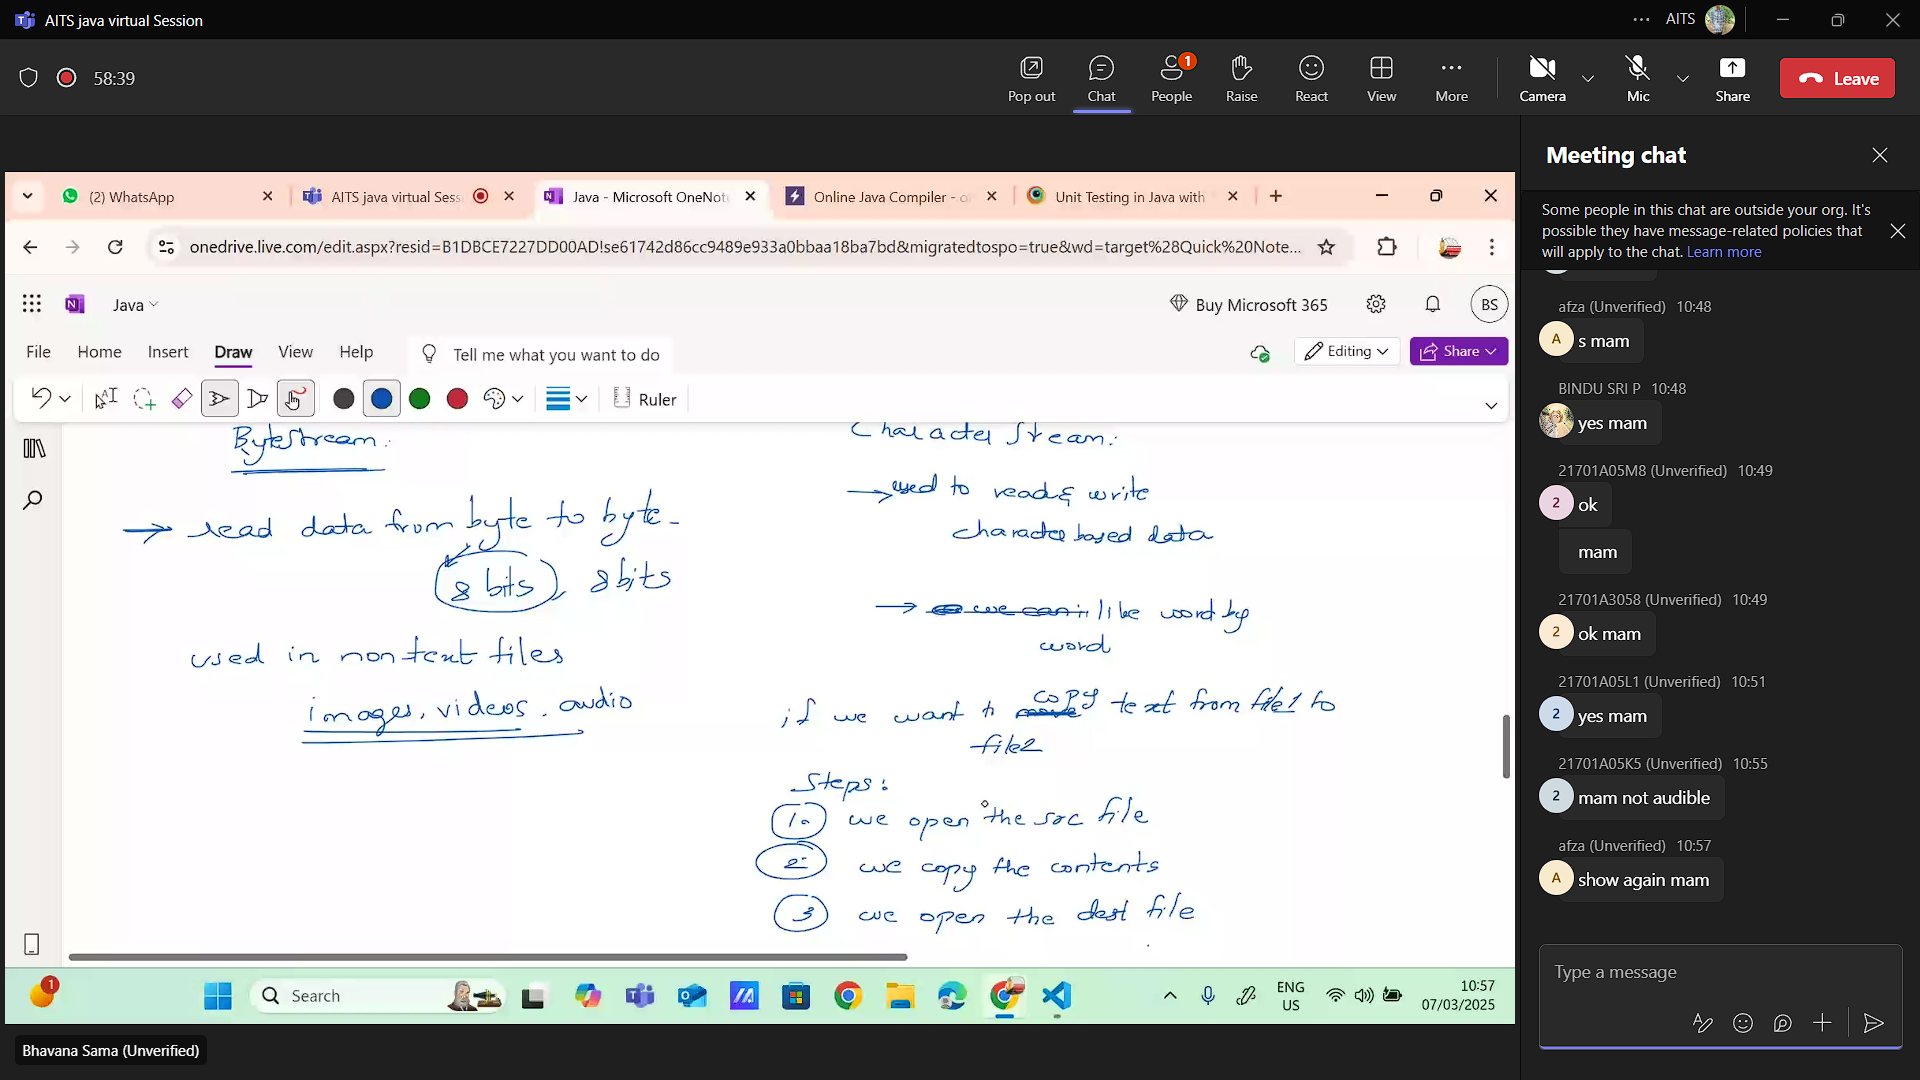 AITS java virtual Session
AITS
58:39
Pop out
Chat
People
1
Raise
React
View
More
Camera
Mic
Share
Leave
(2) WhatsApp
AITS java virtual Sess
Java - Microsoft OneNot
Online Java Compiler - o
Unit Testing in Java with
onedrive.live.com/edit.aspx?resid=B1DBCE7227DD00AD!se61742d86cc9489e933a0bbaa18ba7bd&migratedtospo=true&wd=target%28Quick%20Note...
Java
Buy Microsoft 365
BS
File
Home
Insert
Draw
View
Help
Tell me what you want to do
Editing
Share
Ruler
Bytestream.
→ read data from byte to byte-
8 bits, 8 bits
used in nontext files
images, videos, audio
Character Stream:
→ used to read & write
character based data
→ we can: like word by
word
if we want to copy text from file1 to
file2
Steps:
1. we open the src file
2- we copy the contents
3 we open the dest file
1
Search
ENG
US
10:57
07/03/2025
Bhavana Sama (Unverified)
Meeting chat
Some people in this chat are outside your org. It's
possible they have message-related policies that
will apply to the chat. Learn more
afza (Unverified) 10:48
A
s mam
BINDU SRI P 10:48
yes mam
21701A05M8 (Unverified) 10:49
2
ok
mam
21701A3058 (Unverified) 10:49
2
ok mam
21701A05L1 (Unverified) 10:51
2
yes mam
21701A05K5 (Unverified) 10:55
2
mam not audible
afza (Unverified) 10:57
A
show again mam
Type a message